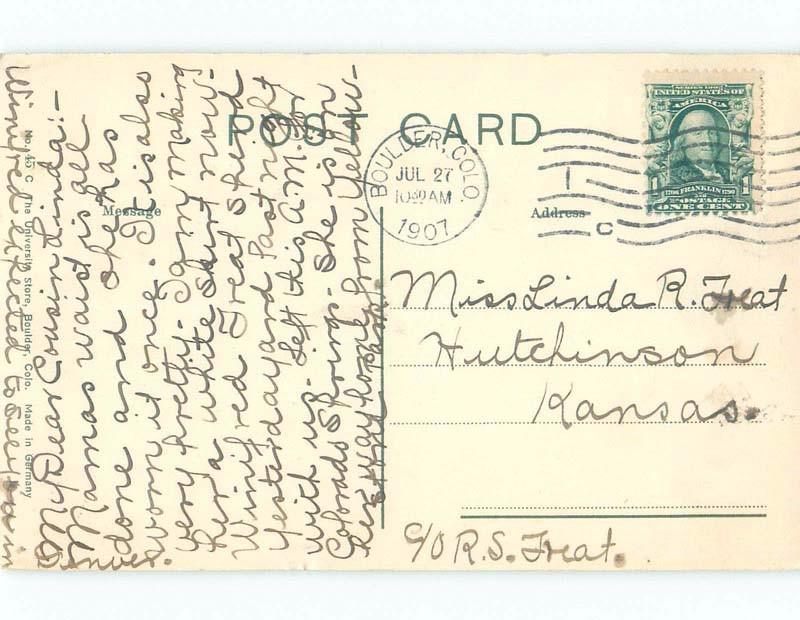 POST CARD
Message
Address
BOULDER, COLO.
JUL 27
1030 AM
1907
C
SERIES 1902
UNITED STATES OF
AMERICA
1706 FRANKLIN 1790
POSTAGE
1 1
ONE CENT
Miss Linda R. Treat
Hutchinson
Kansas.
C/O R.S. Treat.
My Dear Cousin Linda:-
Mamas waist is all
done and she has
worn it once. It is also
very pretty. I am making
her a white skirt now.
Winifred Treat spend
Yesterday and last night
with us. Left this A.M. for
Colorado Springs. She is on
her way home from Yellow-
stone Park.
Winifred expected to see you in
Denver.
No. 45 C The University Store, Boulder, Colo. Made in Germany